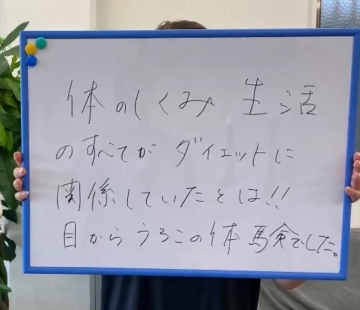 体のしくみ 生活
のすべてが ダイエットに
関係していたとは!!
目からうろこの体験でした。